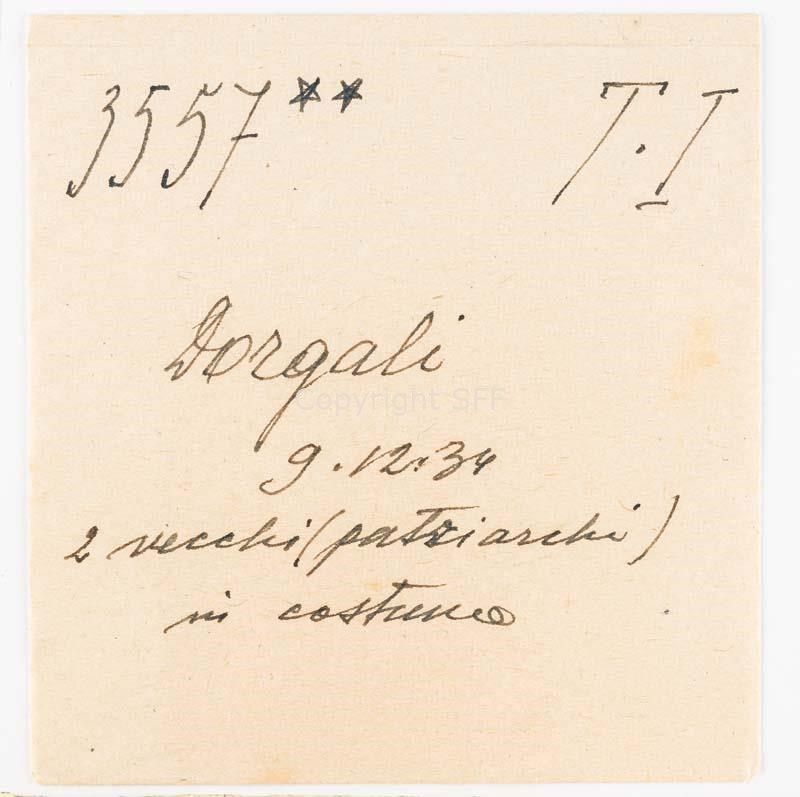 3557** T.I
Dorgali
Copyright SFF
9.12.34
2 vecchi (patriarchi)
in costume